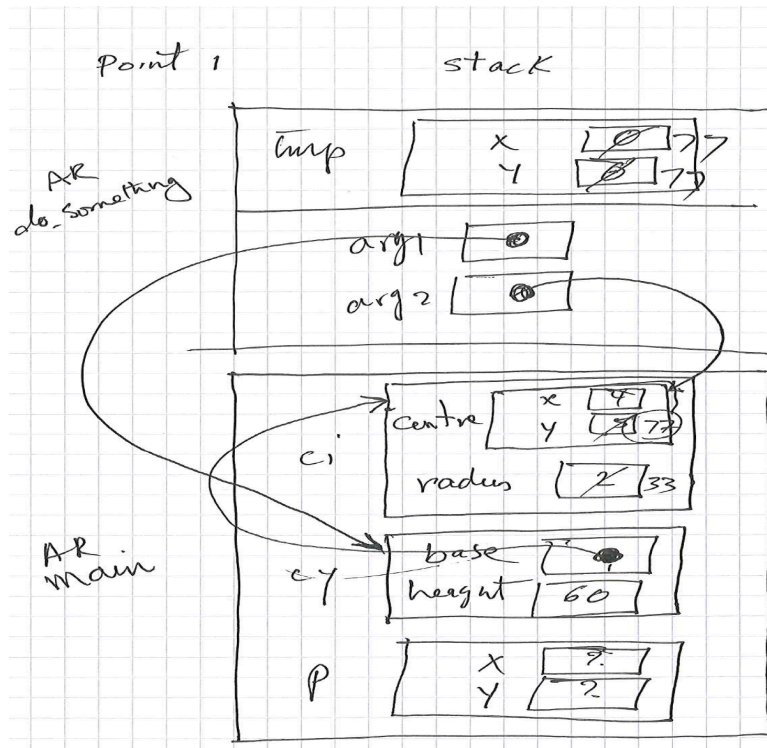 Point 1 stack
AR do_something
tmp
x 0 77
Y 0 77
arg1
arg2
AR main
ci
centre
x 4
Y 77
radius 2 33
cy
base
height 60
P
X ?
Y ?